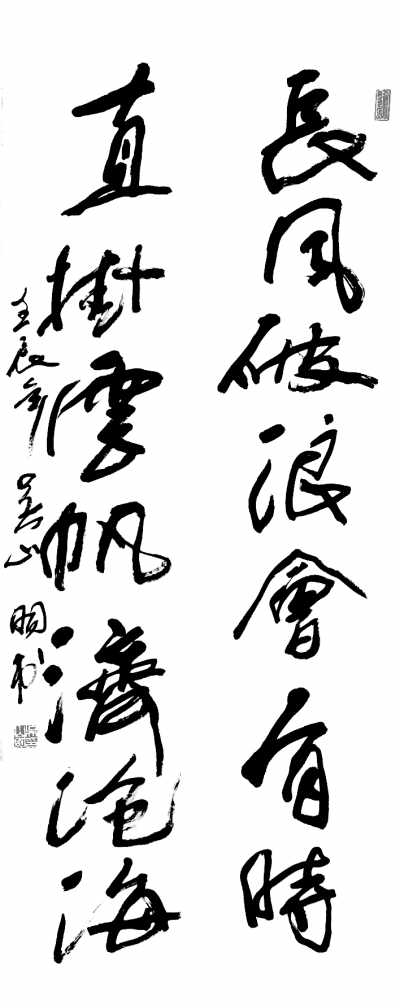 長風破浪會有時
直掛雲帆濟滄海
壬辰年 吴山明书